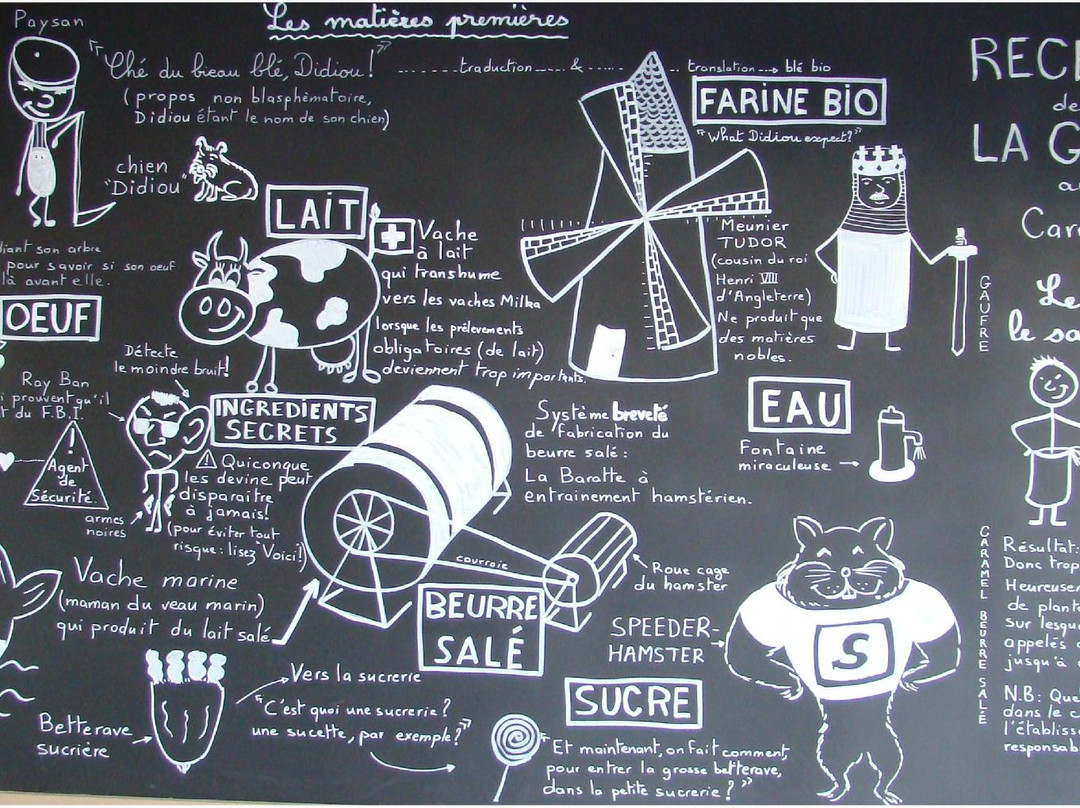 Les matières premières
Paysan
"Ché du bieau blé, Didiou!"
traduction & translation → blé bio
(propos non blasphèmatoire,
Didiou étant le nom de son chien)
chien
"Didiou
FARINE BIO
"What Didiou expect?"
Meunier
TUDOR
(cousin du roi
Henri VIII
d'Angleterre)
Ne produit que
des matières
nobles.
LAIT
Vache
à lait
qui transhume
vers les vaches Milka
lorsque les prélevements
obligatoires (de lait)
deviennent trop importants.
son arbre
pour savoir si son oeuf
là avant elle.
OEUF
Détecte
le moindre bruit!
Ray Ban
prouvent qu'il
du F.B.I.
!
Agent
de
Sécurité.
armes
noires
INGREDIENTS
SECRETS
! Quiconque
les devine peut
disparaitre
à jamais!
(pour éviter tout
risque: lisez "Voici!)
Système breveté
de fabrication du
beurre salé:
La Baratte à
entrainement hamstérien.
courroie
Roue cage
du hamster
EAU
Fontaine
miraculeuse
BEURRE
SALÉ
Vache marine
(maman du veau marin)
qui produit du lait salé
SPEEDER-
HAMSTER
S
Betterave
sucrière
Vers la sucrerie
"C'est quoi une sucrerie?
une sucette, par exemple?"
SUCRE
"Et maintenant, on fait comment,
pour entrer la grosse betterave,
dans la petite sucrerie?"
GAUFRE
CARAMEL BEURRE SALÉ
LA
Résultat:
Donc trop
de
sur
appelés
jusqu'à
N.B:
dans le